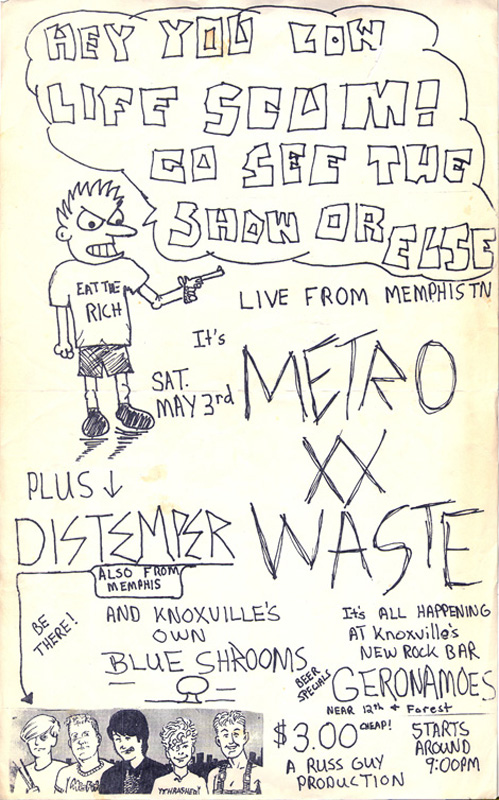 HEY YOU LOW
LIFE SCUM!
GO SEE THE
SHOW OR ELSE
EAT THE
RICH
LIVE FROM MEMPHIS TN
It's
SAT.
MAY 3rd
METRO
XX
WASTE
PLUS ↓
DISTEMPER
ALSO FROM
MEMPHIS
BE
THERE!
AND KNOXVILLE'S
OWN
BLUE SHROOMS
It's ALL HAPPENING
AT Knoxville's
NEW ROCK BAR
BEER
SPECIALS
GERONAMOES
NEAR 12th + Forest
$3.00 CHEAP!
STARTS
AROUND
9:00PM
A RUSS GUY
PRODUCTION